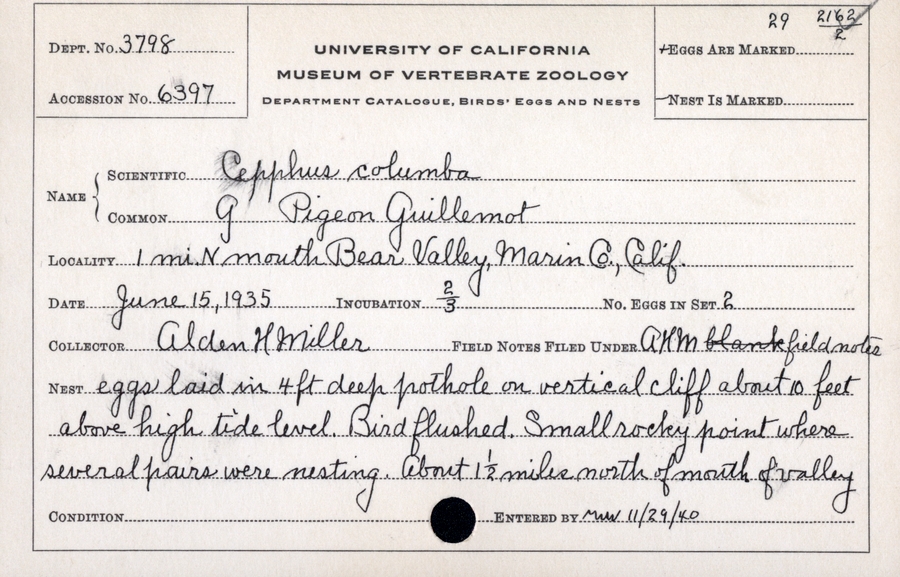 29 2162/2
DEPT. NO. 3798
UNIVERSITY OF CALIFORNIA
+EGGS ARE MARKED
MUSEUM OF VERTEBRATE ZOOLOGY
ACCESSION NO. 6397
DEPARTMENT CATALOGUE, BIRDS' EGGS AND NESTS
—NEST IS MARKED
NAME { SCIENTIFIC Cepphus columba
COMMON G Pigeon Guillemot
LOCALITY 1 mi. N mouth Bear Valley, Marin Co., Calif.
DATE June 15, 1935 INCUBATION 2/3 NO. EGGS IN SET 2
COLLECTOR Alden H Miller FIELD NOTES FILED UNDER AHM blank field notes
NEST eggs laid in 4 ft deep pothole on vertical cliff about 10 feet
above high tide level. Bird flushed. Small rocky point where
several pairs were nesting. About 1 1/2 miles north of mouth of valley
CONDITION ENTERED BY 11/29/40